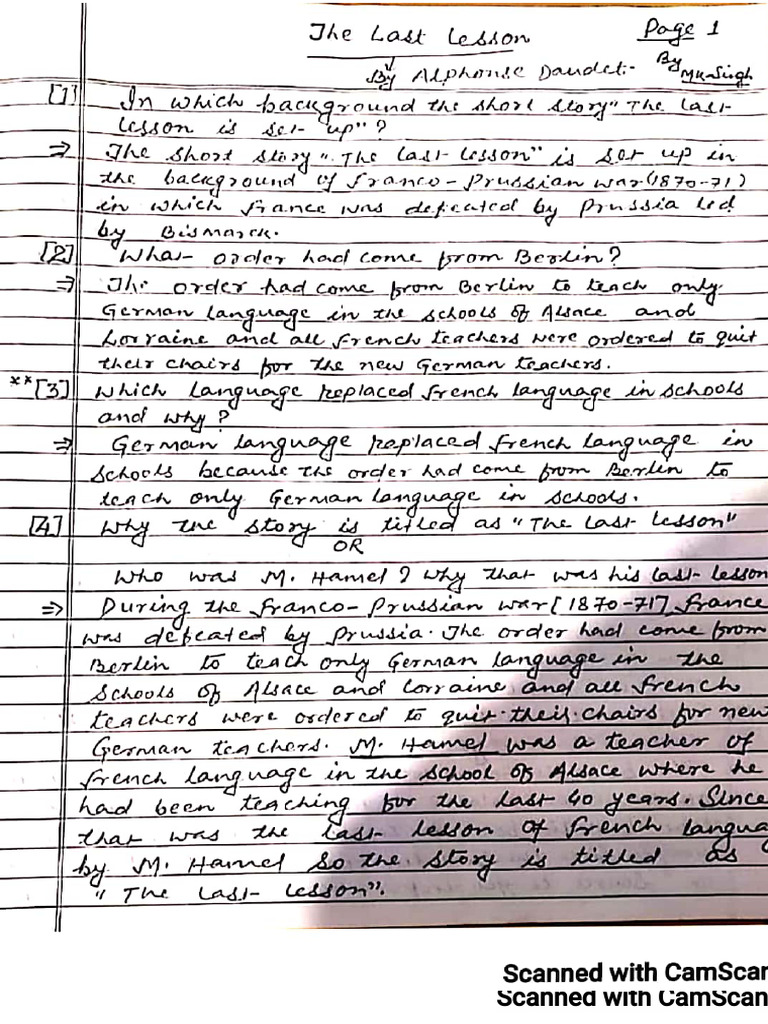 The Last Lesson Page 1
By Alphonse Daudet:- By MK Singh
[1] In which background the short story "The Last
Lesson is set "up"?
⇒ The short story "The Last Lesson" is set up in
the background of Franco-Prussian war(1870-71)
in which France was defeated by Prussia led
by Bismarck.
[2] What order had come from Berlin?
⇒ The order had come from Berlin to teach only
German language in the schools of Alsace and
Lorraine and all French teachers were ordered to quit
their chairs for the new German teachers.
**[3] Which language replaced French language in schools
and why?
⇒ German language replaced French language in
schools because the order had come from Berlin to
teach only German language in schools.
[4] Why the story is titled as "The Last Lesson"
OR
Who was M. Hamel? Why that was his last lesson
⇒ During the Franco-Prussian war[1870-71] France
was defeated by Prussia. The order had come from
Berlin to teach only German language in the
schools of Alsace and Lorraine and all French
teachers were ordered to quit their chairs for new
German teachers. M. Hamel was a teacher of
French language in the school of Alsace where he
had been teaching for the last 40 years. Since
that was the last lesson of French langua
by M. Hamel so the story is titled as
"The Last Lesson".
Scanned with CamScan
Scanned with CamScan